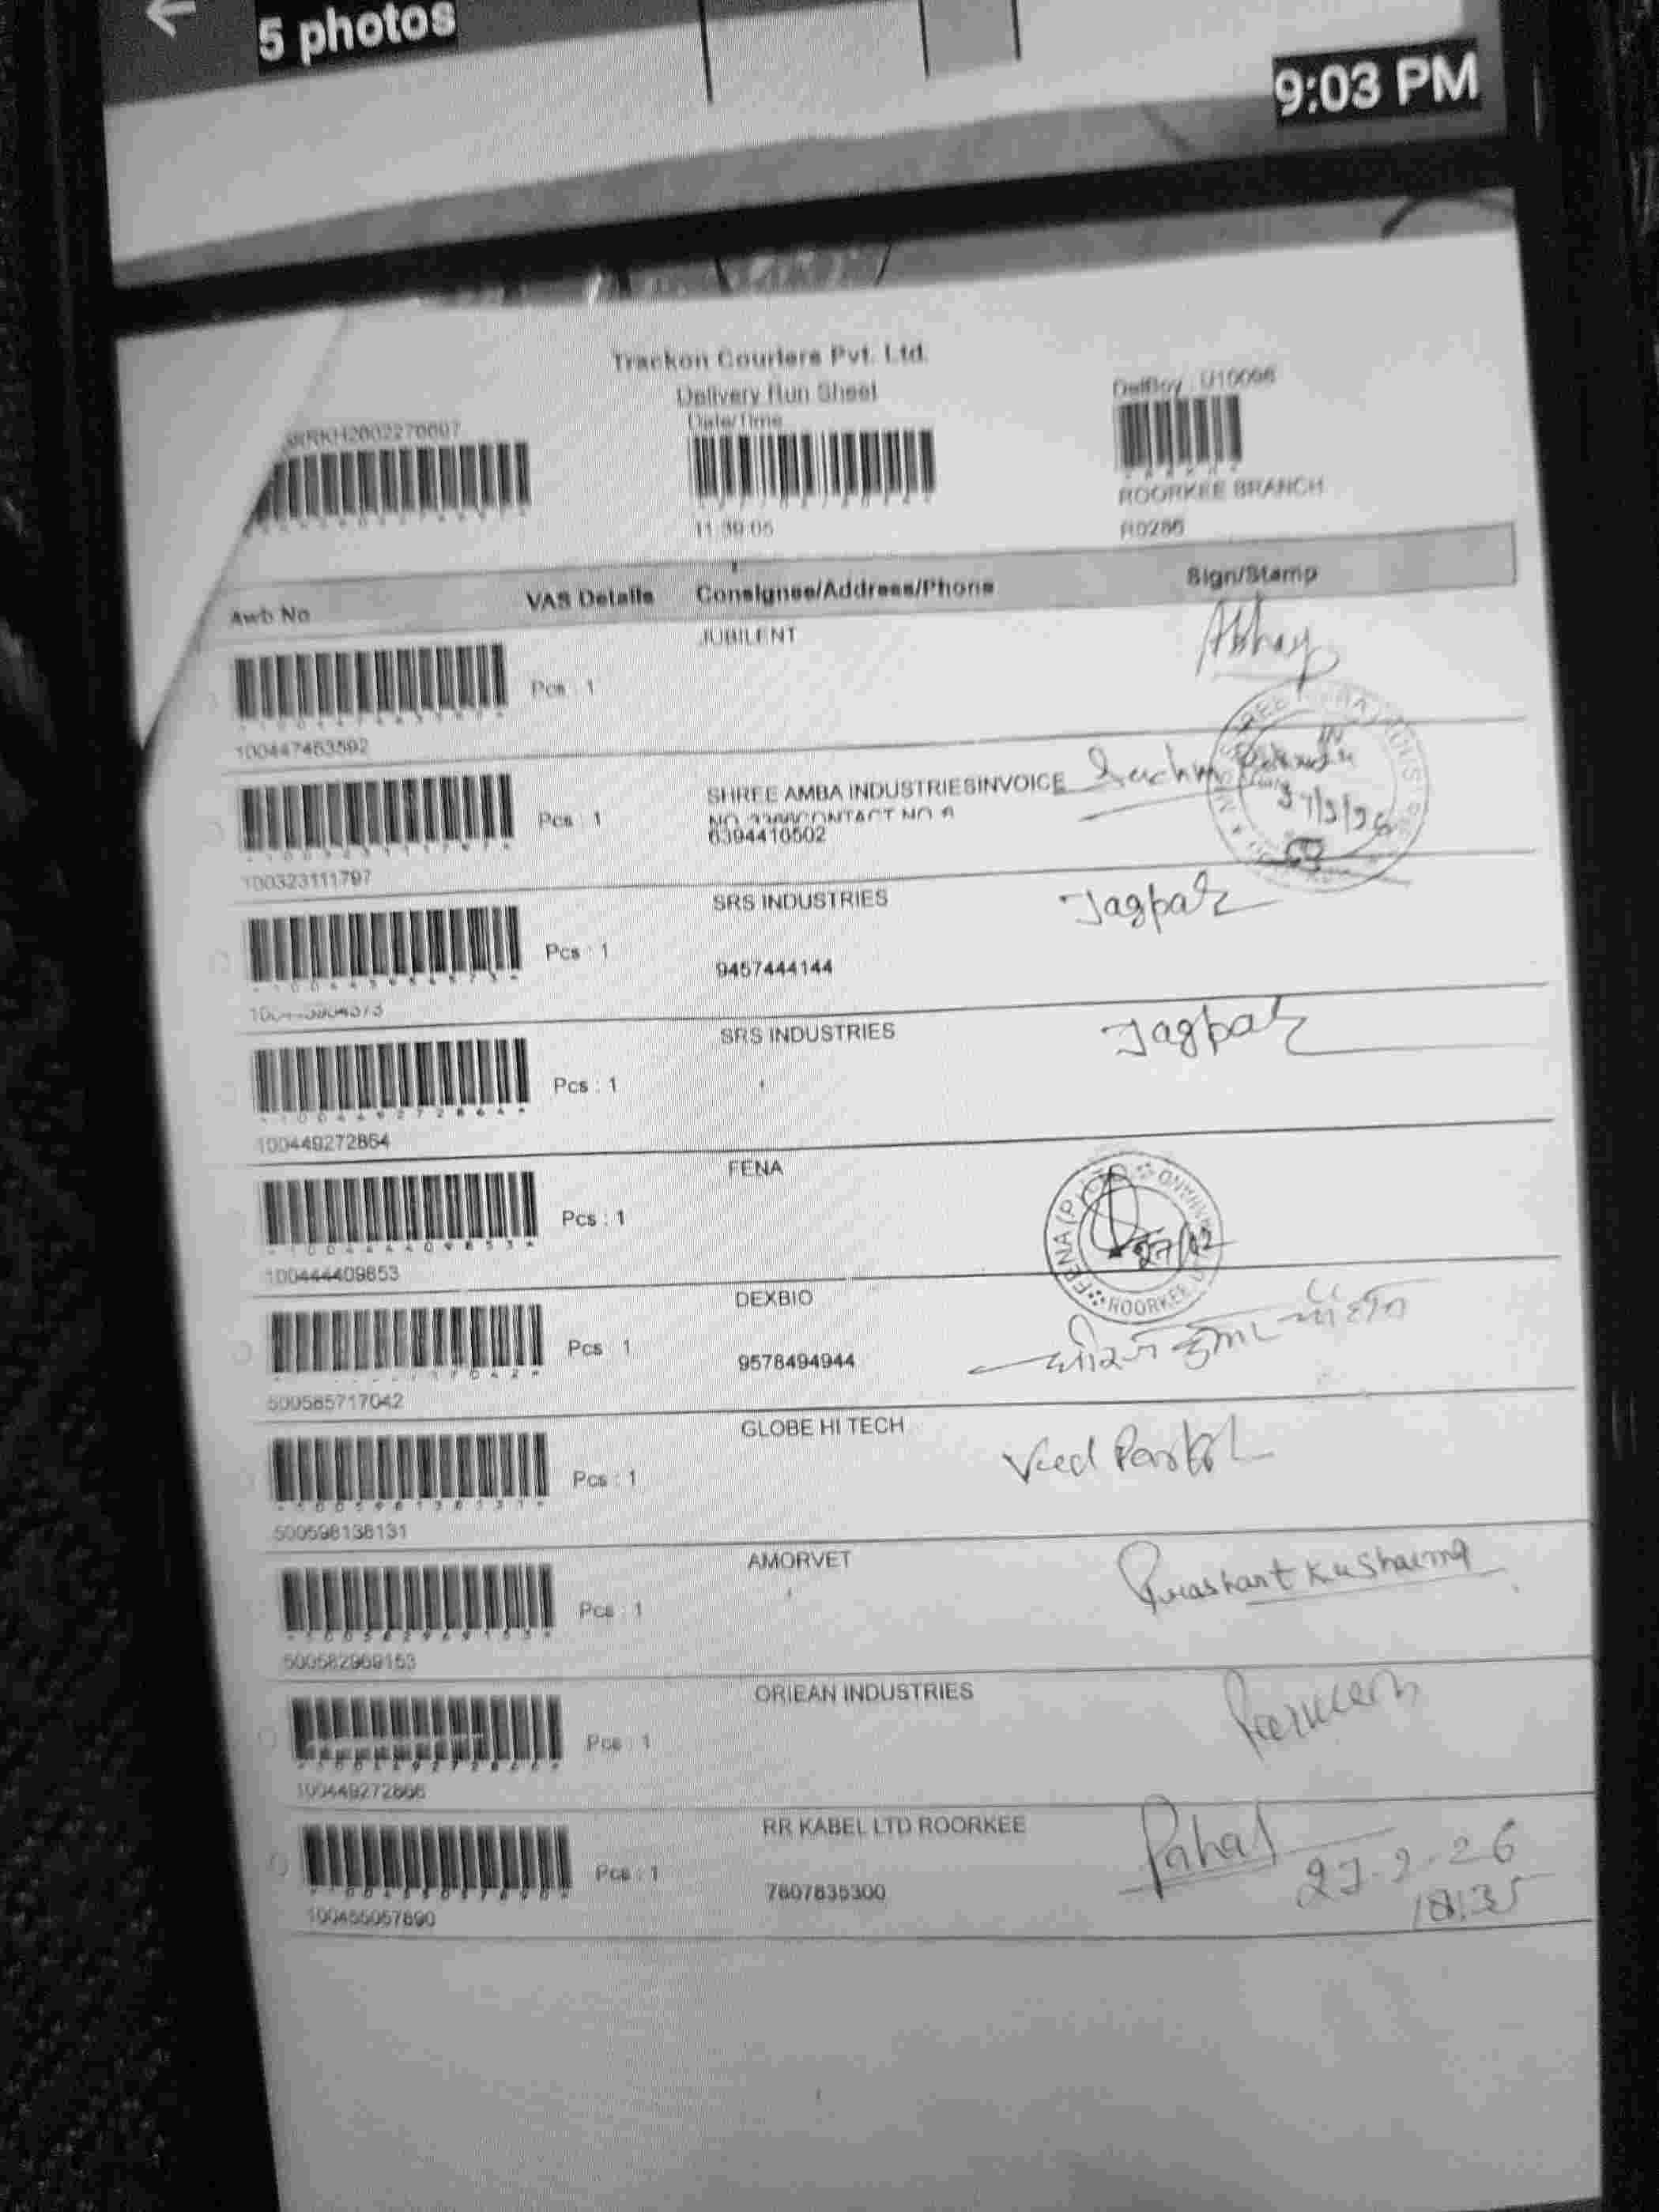 5 photos
9:03 PM
Trackon Couriers Pvt. Ltd.
Delivery Run Sheet
Date/Time
DelBoy : U10096
11:39:05
ROORKEE BRANCH
R0286
Awb No VAS Details Consignee/Address/Phone Sign/Stamp
JUBILENT
Abhay
Pcs : 1
100447463592
SHREE AMBA INDUSTRIESINVOICE
Pcs : 1
6394416502
100323111797
SRS INDUSTRIES
Jagpal
Pcs : 1
9457444144
SRS INDUSTRIES
Jagpal
Pcs : 1
100449272864
FENA
FENA (P)
ROORKEE
27/02
Pcs : 1
100444409853
DEXBIO
Pcs 1
9578494944
कुमार
500585717042
GLOBE HI TECH
Pcs : 1
500598138131
AMORVET
Prashant Kushaima
Pcs : 1
500582969153
ORIEAN INDUSTRIES
Pcs : 1
100449272866
RR KABEL LTD ROORKEE
Pcs : 1
7807835300
27-2-26
100455057890